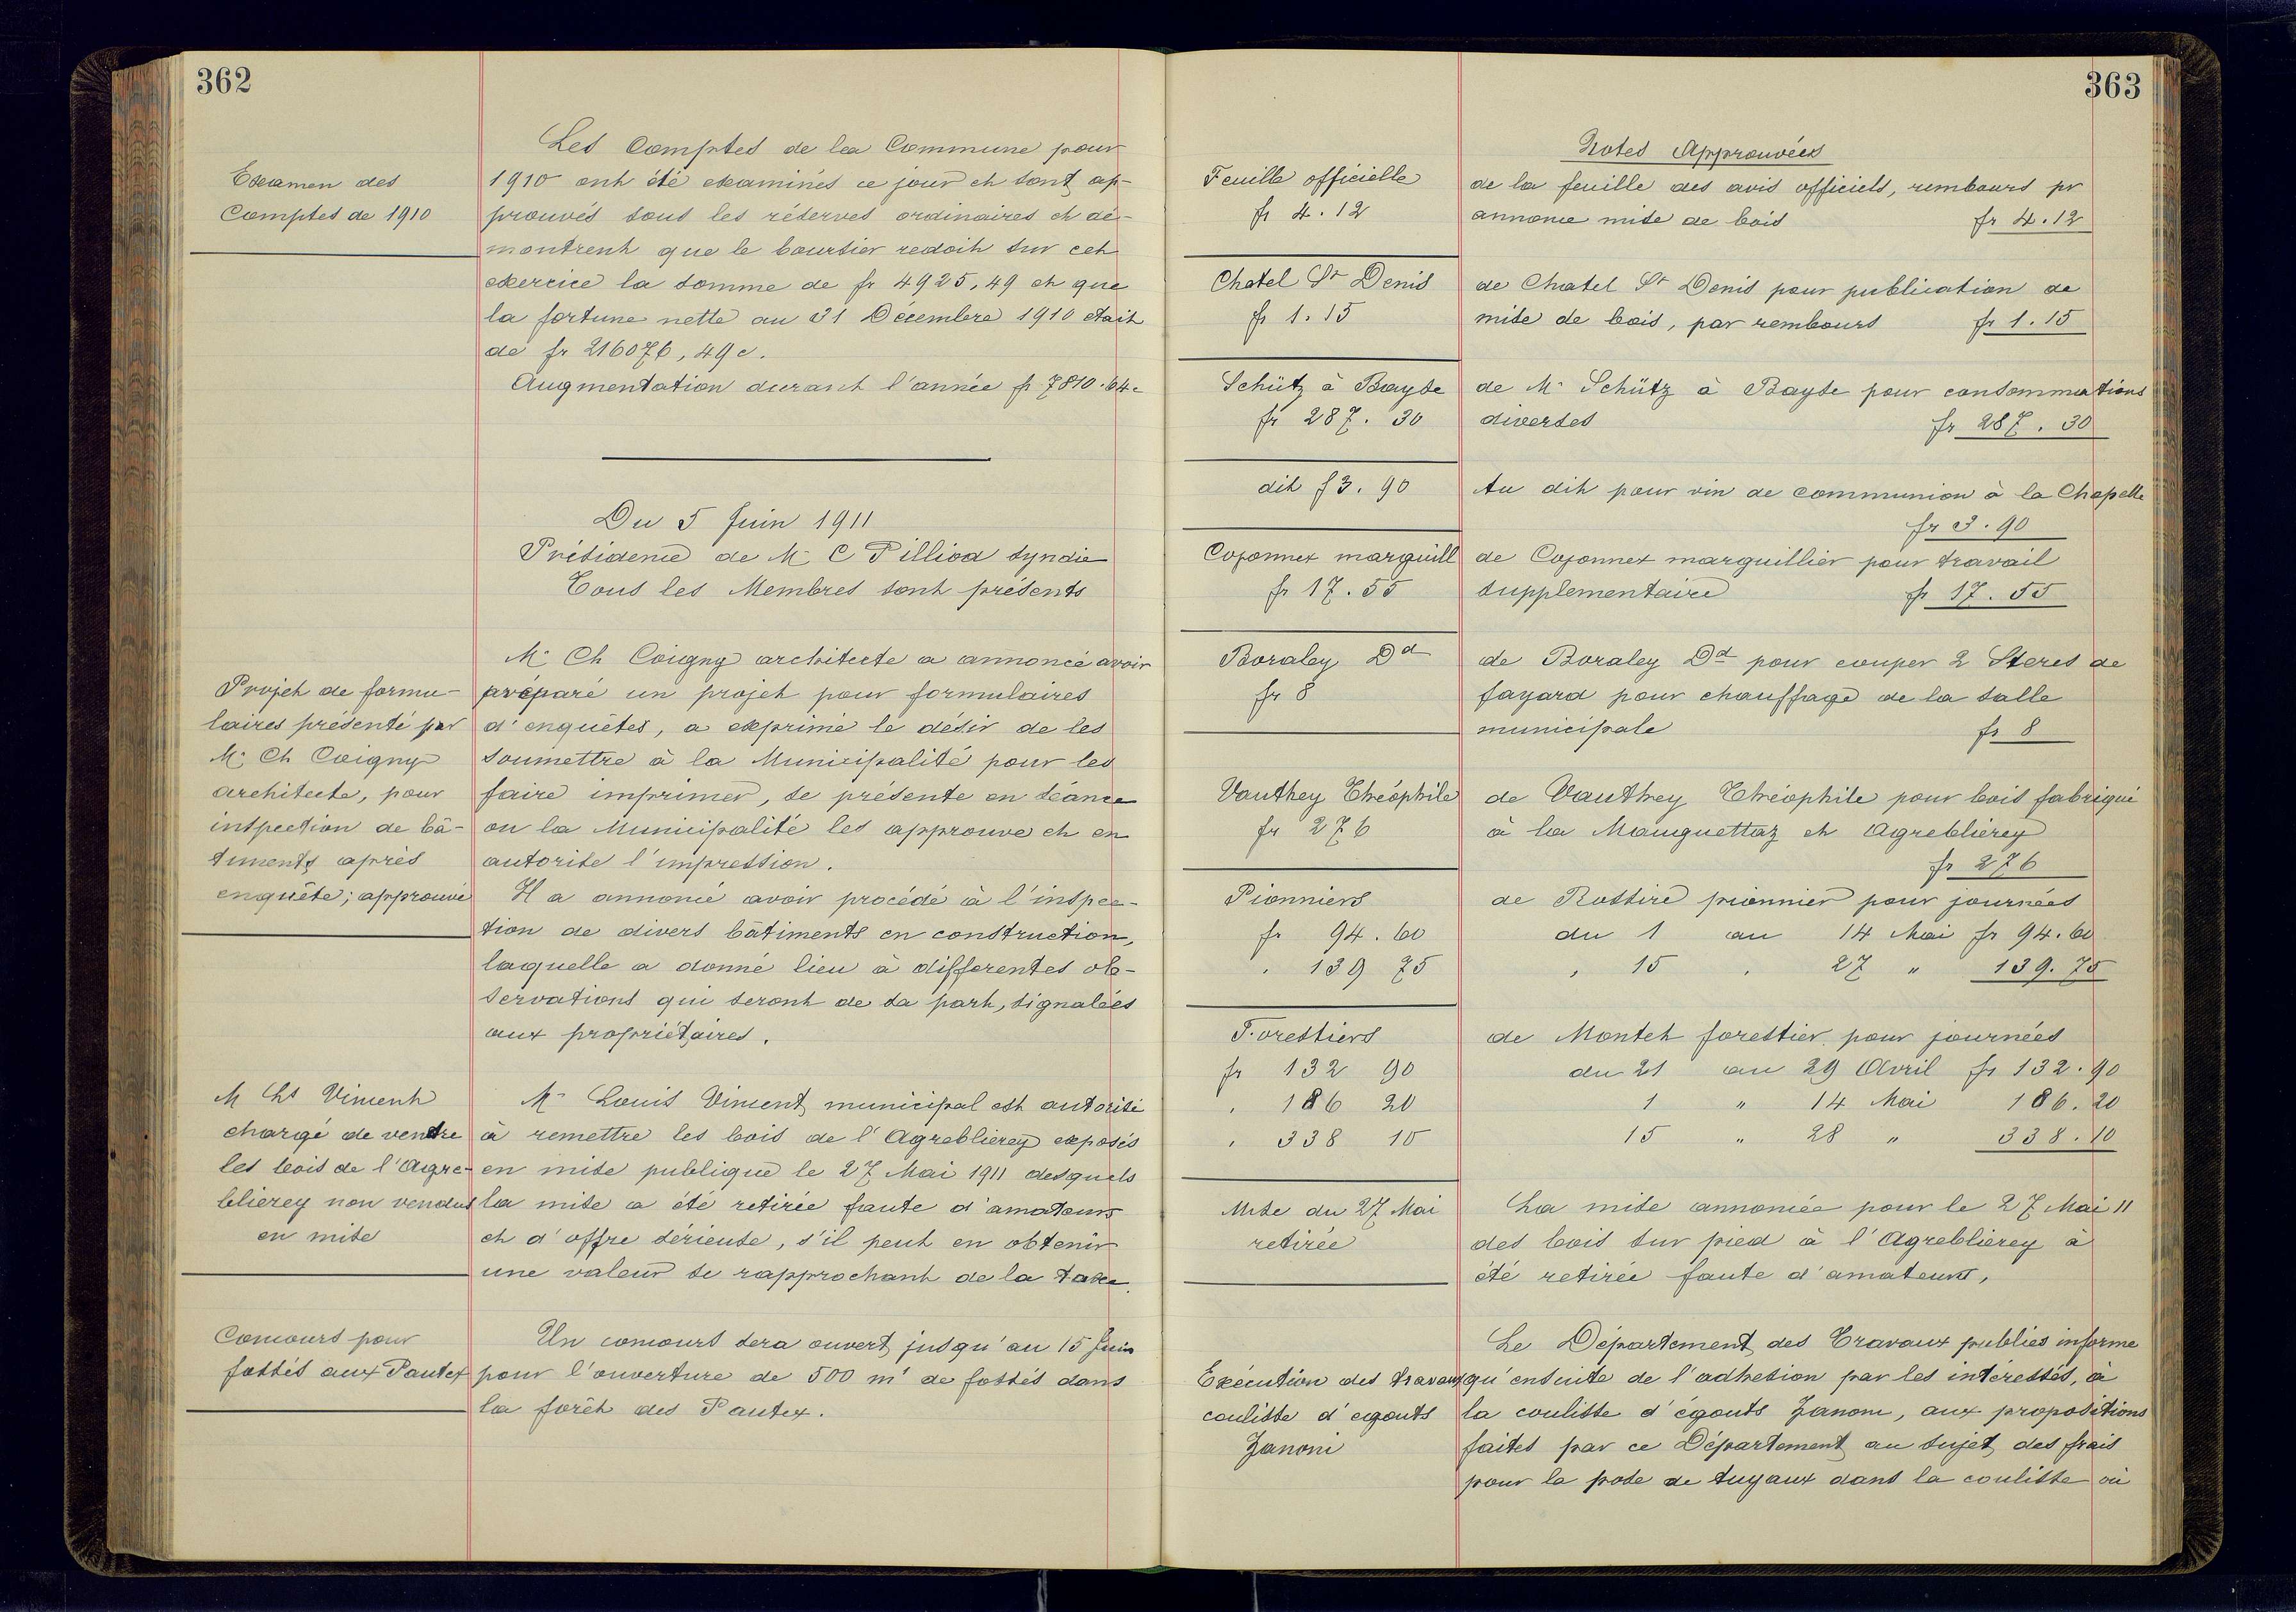 362
Les Comptes de la Commune pour
Examen des
Comptes de 1910
1910 ont été examinés ce jour et sont ap-
prouvés sous les réserves ordinaires et dé-
montrent que le boursier redoit sur cet
exercice la somme de fr 4925,49 et que
la fortune nette au 31 Décembre 1910 était
de fr 216076,49 c.
Augmentation durant l'année fr 7810.64 c
Du 5 Juin 1911
Présidence de Mr C Pilliod syndic
Tous les Membres sont présents
Projet de formu-
laires présenté par
Mr Ch Coigny
architecte, pour
inspection de bâ-
timents après
enquête; approuvé
Mr Ch Coigny architecte a annoncé avoir
préparé un projet pour formulaires
d'enquêtes, a exprimé le désir de les
soumettre à la Municipalité pour les
faire imprimer, se présente en séance
ou la Municipalité les approuve et en
autorise l'impression.
Il a annoncé avoir procédé à l'inspec-
tion de divers bâtiments en construction,
laquelle a donné lieu à differentes ob-
servations qui seront de sa part, signalées
aux propriétaires.
M Ls Vincent
chargé de vendre
les bois de l'Agre-
blierey non vendus
en mise
Mr Louis Vincent municipal est autorisé
à remettre les bois de l'Agreblierey exposés
en mise publique le 27 Mai 1911 desquels
la mise a été retirée faute d'amateurs
et d'offre sérieuse, s'il peut en obtenir
une valeur se rapprochant de la taxe.
Concours pour
fossés aux Pautex
Un concours sera ouvert jusqu'au 15 Juin
pour l'ouverture de 500 m' de fossés dans
la forêt des Pautex.
363
Notes Approuvées
Feuille officielle
fr 4.12
de la feuille des avis officiels, rembours pr
annonce mise de bois fr 4.12
Chatel St Denis
fr 1.15
de Chatel St Denis pour publication de
mise de bois, par rembours fr 1.15
Schütz à Bayse
fr 287.30
de Mr Schütz à Bayse pour consommations
diverses fr 287.30
dit f 3.90
Au dit pour vin de communion à la Chapelle
fr 3.90
Cojonnex marguill
fr 17.55
de Cojonnex marguillier pour travail
supplementaire fr 17.55
Boraley Dd
fr 8
de Boraley Dd pour couper 2 Steres de
fayard pour chauffage de la salle
municipale fr 8
Vauthey Théophile
fr 276
de Vauthey Théophile pour bois fabriqué
à la Mauguettaz et Agreblierey
fr 276
Pionniers
fr 94.60
" 139 75
de Rossire pionnier pour journées
du 1 au 14 Mai fr 94.60
" 15 " 27 " 139.75
Forestiers
fr 132 90
" 186 20
" 338 10
de Montet forestier pour journées
du 21 au 29 Avril fr 132.90
1 " 14 Mai 186.20
15 " 28 " 338.10
Mise du 27 Mai
retirée
La mise annoncée pour le 27 Mai 11
des bois sur pied à l'Agreblierey à
été retirée faute d'amateurs,
Exécution des travaux
coulisse d'egouts
Zanoni
Le Département des Travaux publics informe
qu'ensuite de l'adhesion par les intéressés, à
la coulisse d'égouts Zanoni, aux propositions
faites par ce Département au sujet des frais
pour la pose de tuyaux dans la coulisse où